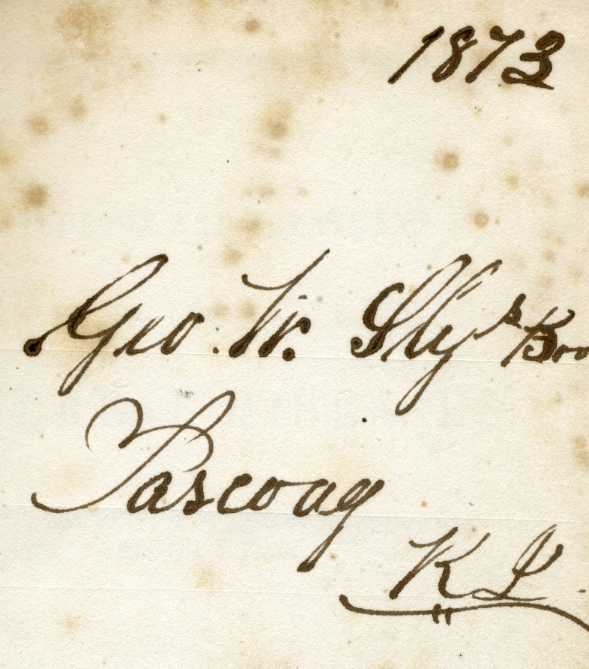 1873
Geo. W. Sly's Boo
Pascoag
R I.